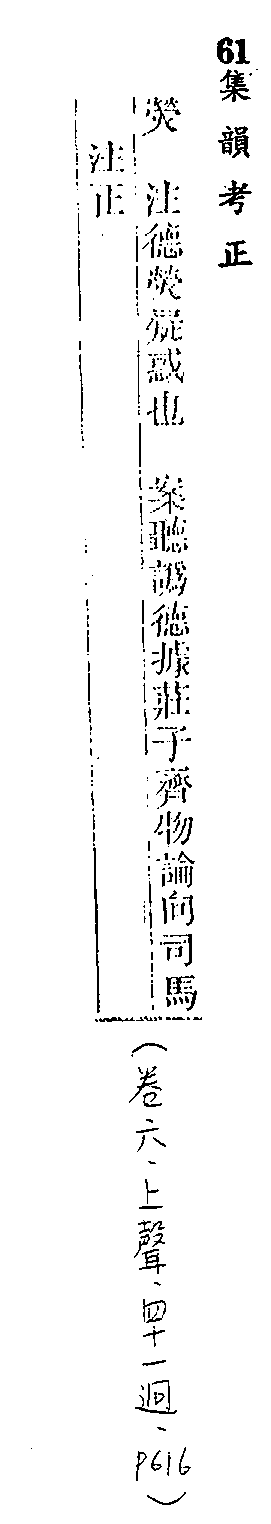 61集韻考正
熒　注德熒疑惑也　案聽譌德據莊子齊物論向司馬
注正
（卷六、上聲、四十一迥、P616）